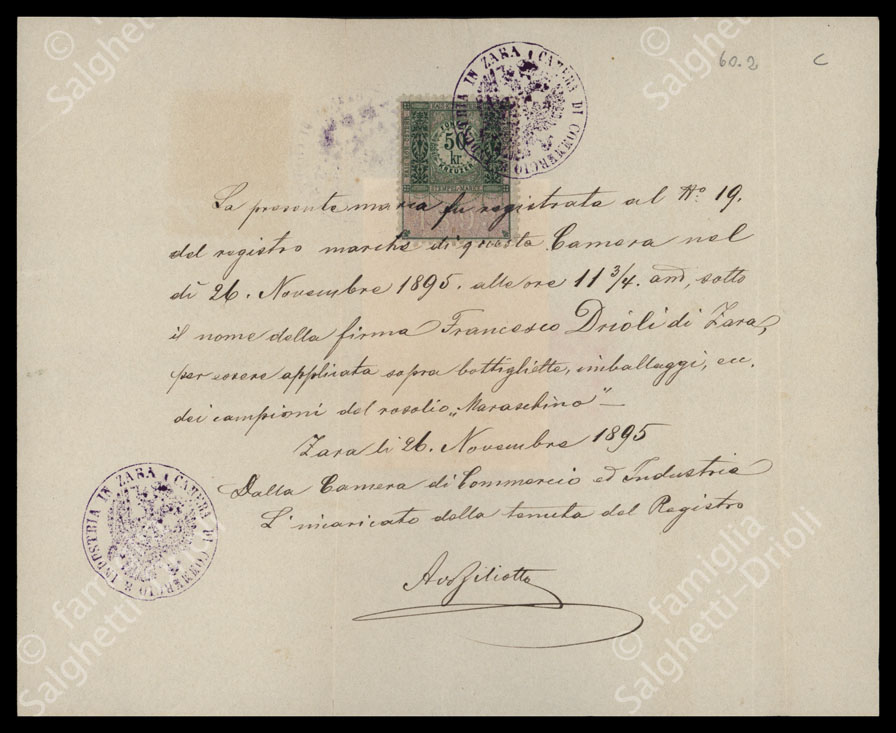 60.2 C
CAMERA DI COMMERCIO E INDUSTRIA IN ZARA
50
kr.
STEMPEL MARKE
La presente marca fu registrata al No. 19.
del registro marche di questa Camera nel
dì 26. Novembre 1895. alle ore 11 3/4. ant, sotto
il nome della firma Francesco Drioli di Zara,
per essere applicata sopra bottigliette, imballaggi, ecc.
dei campioni del rosolio „Maraschino"—
Zara li 26. Novembre 1895
Dalla Camera di Commercio ed Industria
L'incaricato della tenuta del Registro
CAMERA DI COMMERCIO E INDUSTRIA IN ZARA
© famiglia Salghetti-Drioli
© famiglia Salghetti-Drioli